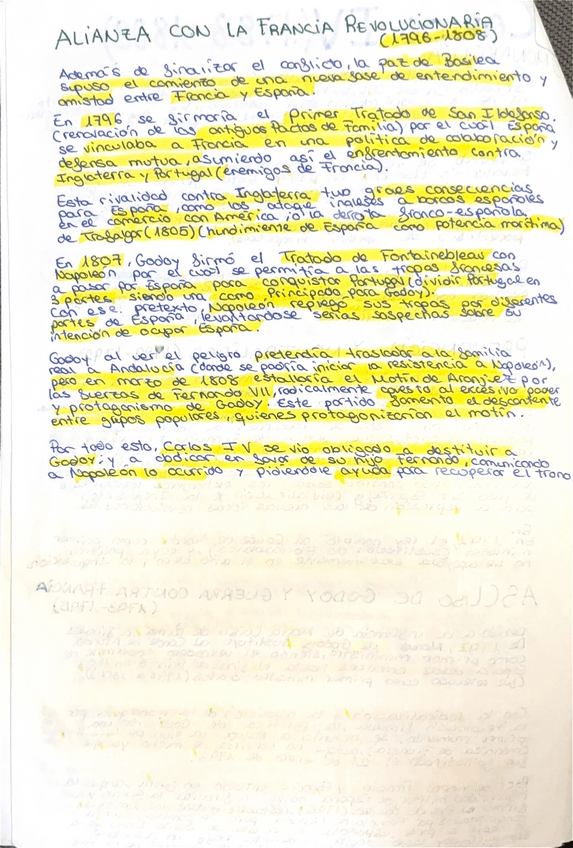 ALIANZA CON LA FRANCIA REVOLUCIONARIA
(1796-1808)
Además de finalizar el conflicto, la paz de Basilea
supuso el comienzo de una nueva fase de entendimiento y
amistad entre Francia y España.
En 1796 se firmaría el Primer Tratado de San Ildefonso
(renovación de los antiguos Pactos de Familia) por el cual España
se vinculaba a Francia en una política de colaboración y
defensa mutua, asumiendo así el enfrentamiento contra
Inglaterra y Portugal (enemigos de Francia).
Esta rivalidad contra Inglaterra tuvo graes consecuencias
para España, como los ataque ingleses a barcos españoles
en el comercio con América, o la derrota franco-española
de Trafalgar (1805) (hundimiento de España como potencia marítima)
En 1807, Godoy firmó el Tratado de Fontainebleau con
Napoleón por el cual se permitía a las tropas francesas
a pasar por España para conquistar Portugal (dividir Portugal en
3 partes siendo una como Principado para Godoy).
Con ese pretexto, Napoleón repliega sus tropas por diferentes
partes de España, levantándose serias sospechas sobre su
intención de ocupar España.
Godoy al ver el peligro pretendía trasladar a la familia
real a Andalucía (donde se podría iniciar la resistencia a Napoleón),
pero en marzo de 1808 estallaría el Motín de Aranjuez por
las fuerzas de Fernando VII, radicalmente opuesto al excesivo poder
y protagonismo de Godoy. Este partido fomentó el descontento
entre grupos populares, quienes protagonizarían al motín.
Por todo esto, Carlos IV se vio obligado a destituir a
Godoy; y a abdicar en favor de su hijo Fernando, comunicando
a Napoleón lo ocurrido y pidiéndole ayuda para recuperar el trono
ASCENSO DE GODOY Y GUERRA CONTRA FRANCIA
(1793-1795)